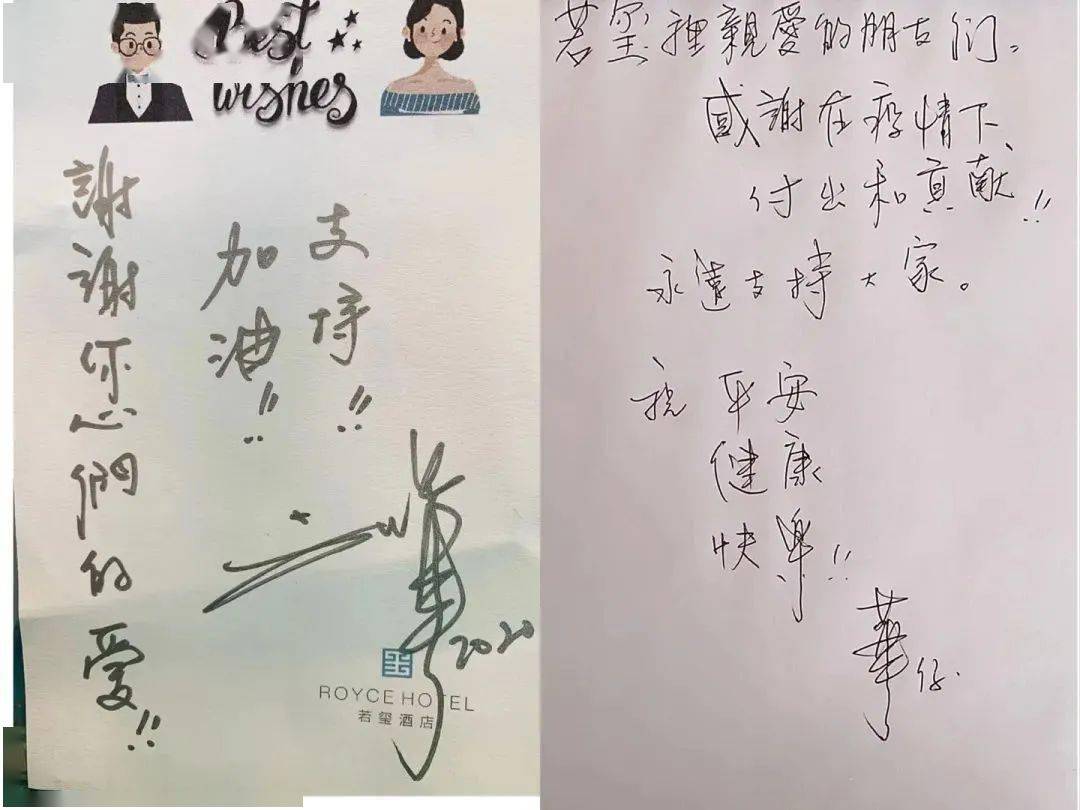 Best
wishes
支持!!
加油!!
謝謝您們的愛!!
華 2020
ROYCE HOTEL
若玺酒店
若玺裡親愛的朋友们。
感謝在疫情下
付出和貢献!!
永遠支持大家。
祝平安
健康
快樂!!
華仔.